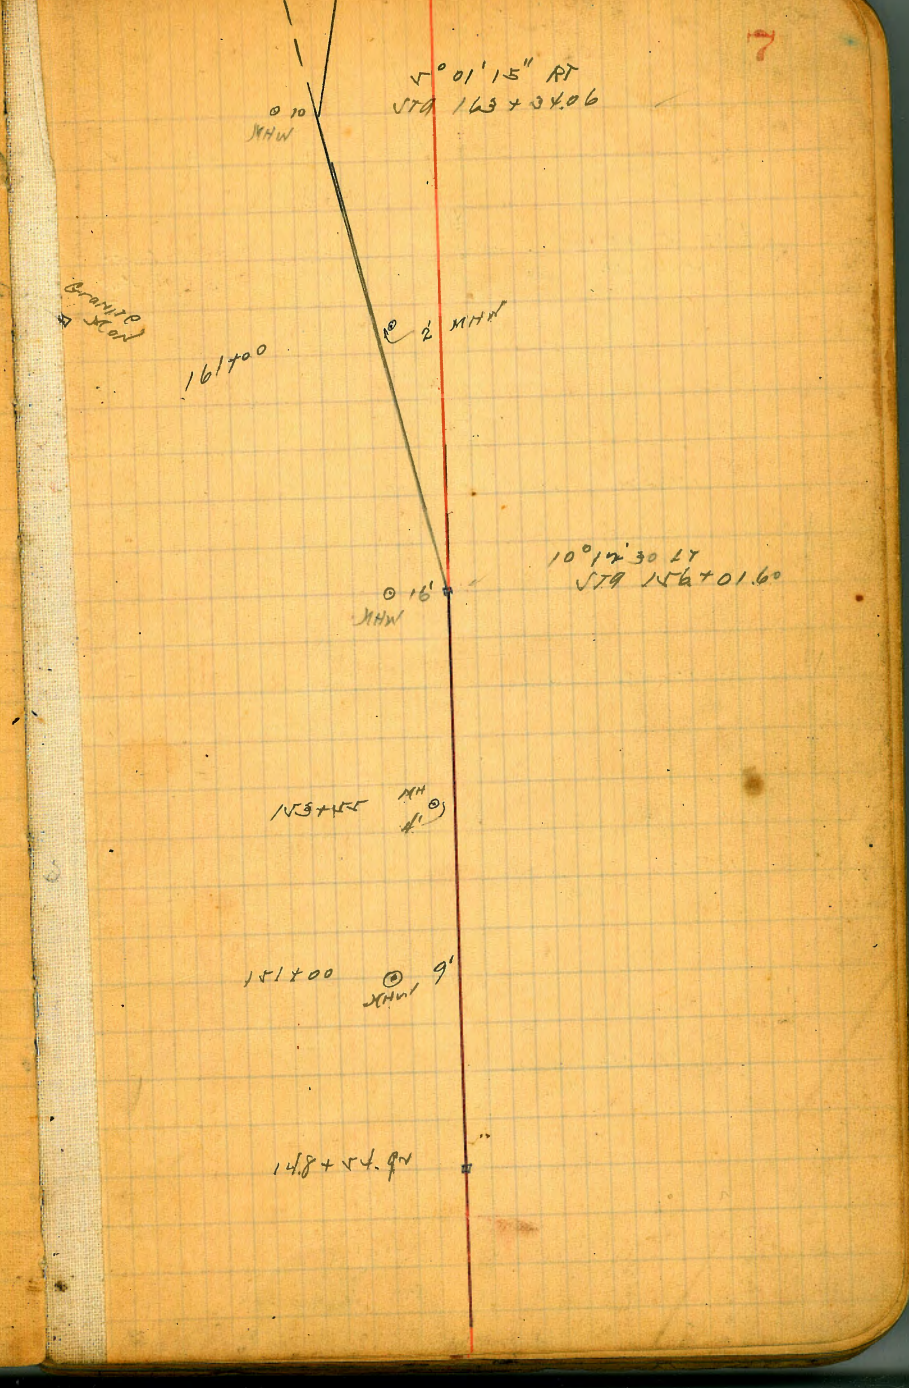 7
5° 01' 15" RT
STA 163 + 34.06
10
MHW
Granite
Mon
2' MHW
161+00
10° 12' 30 LT
STA 156 + 01.60
16'
MHW
153+55
MH
4'
151+00
9'
MHW
148 + 54.92